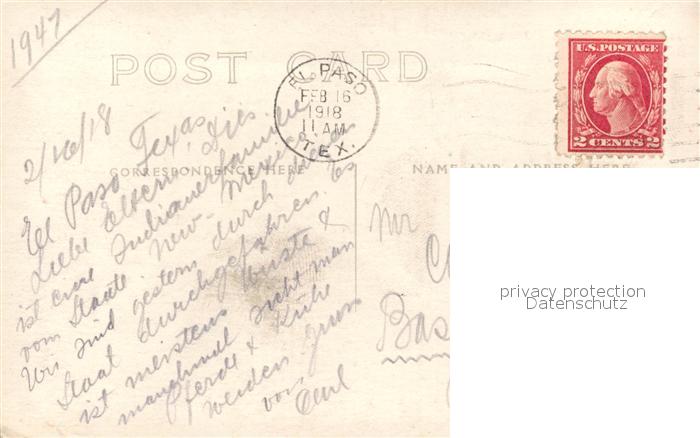 1947
POST CARD
EL PASO
FEB 16
1918
11 AM
TEX.
U.S. POSTAGE
2 CENTS 2
CORRESPONDENCE HERE
NAME AND ADDRESS HERE
2/16/18
El Paso, Texas.
Liebe Eltern, Dies
ist eine Indianerfamilie
vom Staate New-Mexico
Wir sind gestern durch diesen
Staat durchgefahren. Es
ist meistens Wüste &
manchmal sieht man
Pferde & Kühe
weiden. Gruss
von
Carl
Mr
Bas
privacy protection
Datenschutz